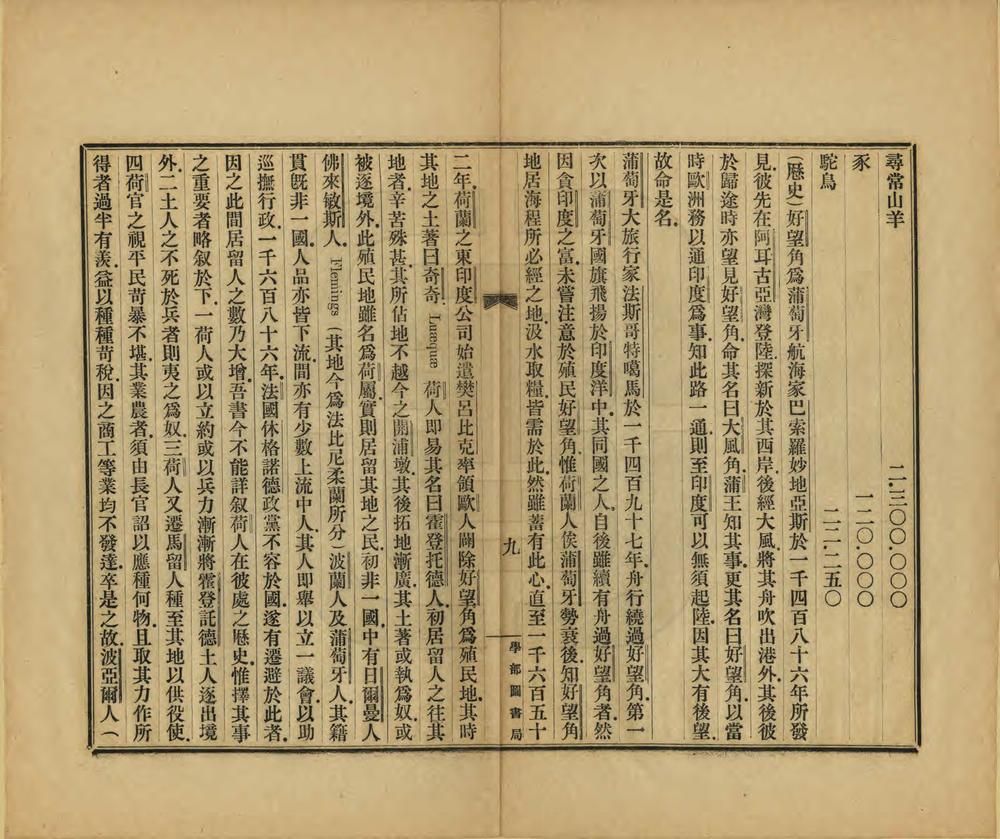 尋常山羊　二.三〇〇.〇〇〇
豕　一二〇.〇〇〇
駝鳥　二二.二五〇
(歷史)好望角爲蒲萄牙航海家巴索羅妙地亞斯於一千四百八十六年所發
見.彼先在阿耳古亞灣登陸.探新於其西岸.後經大風.將其舟吹出港外.其後彼
於歸途時亦望見好望角.命其名曰大風角.蒲王知其事.更其名曰好望角.以當
時歐洲務以通印度爲事.知此路一通則至印度可以無須起陸.因其大有後望.
故命是名.
蒲萄牙大旅行家法斯哥特噶馬於一千四百九十七年.舟行繞過好望角.第一
次以蒲萄牙國旗飛揚於印度洋中.其同國之人.自後雖續有舟過好望角者.然
因貪印度之富.未嘗注意於殖民好望角.惟荷蘭人俟蒲萄牙勢衰後.知好望角
地居海程所必經之地.汲水取糧.皆需於此.然雖蓄有此心.直至一千六百五十
九
學部圖書局
二年.荷蘭之東印度公司始遣樊呂比克率領歐人闢除好望角爲殖民地.其時
其地之土著曰奇奇.Luæquæ 荷人即易其名曰霍登托德人.初居留人之往其
地者.辛苦殊甚.其所佔地不越今之開浦墩.其後拓地漸廣.其土著或執爲奴.或
被逐境外.此殖民地雖名爲荷屬.實則居留其地之民.初非一國.中有日爾曼人
佛來敏斯人.Flemings(其地今爲法比尼柔蘭所分)波蘭人及蒲萄牙人.其籍
貫旣非一國.人品亦皆下流.間亦有少數上流中人.其人即舉以立一議會.以助
巡撫行政.一千六百八十六年.法國休格諾德政黨不容於國.遂有遷避於此者.
因之此間居留人之數乃大增.吾書今不能詳叙荷人在彼處之歷史.惟擇其事
之重要者略叙於下.一荷人或以立約或以兵力漸漸將霍登託德土人逐出境
外.二土人之不死於兵者則夷之爲奴.三荷人又遷馬留人種至其地以供役使.
四荷官之視平民苛暴不堪.其業農者.須由長官詔以應種何物.且取其力作所
得者過半有羨.益以種種苛稅.因之商工等業均不發達.卒是之故.波亞爾人(